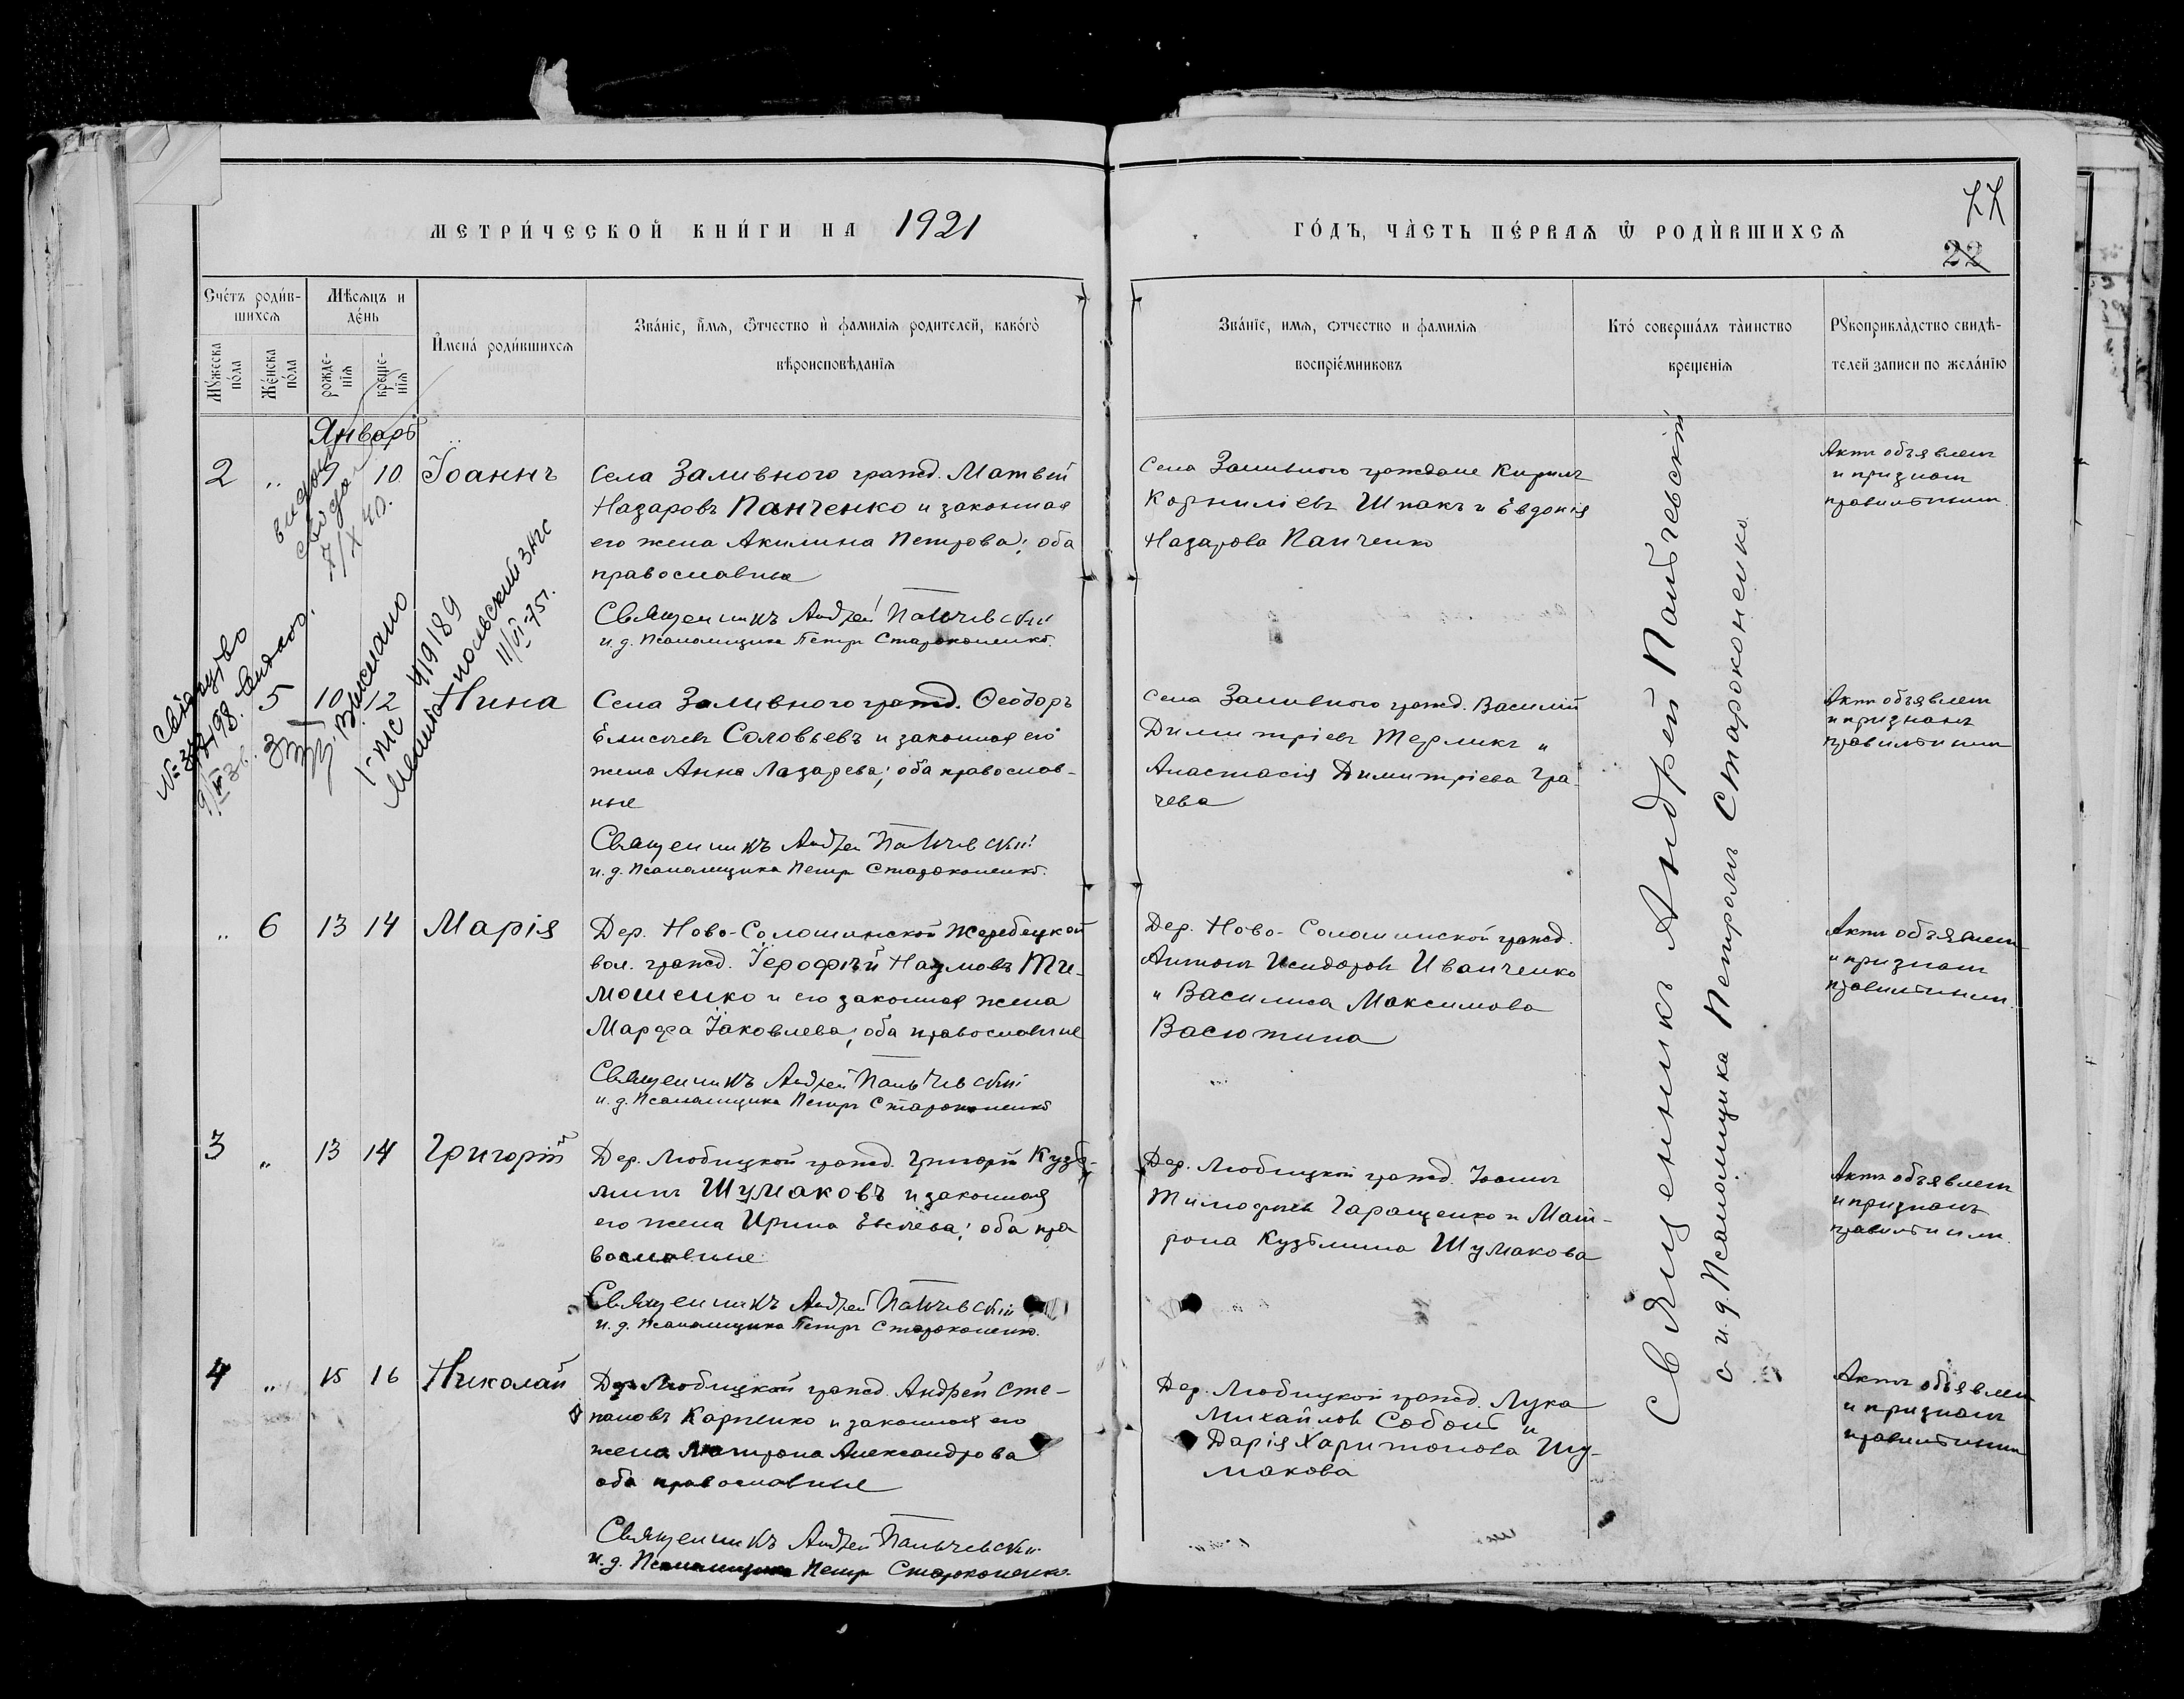 МЕТРИ́ЧЕСКОЙ КНИ́ГИ НА 1921
ГО́ДЪ, ЧА̀СТЬ ПЕ́РВАѦ Ѿ РОДИ́ВШИХСѦ
22
Сче́тъ роди́в-
шихсѧ
Мѣсѧцъ и
де́нь
Мꙋжеска
по́ла
Же́нска
по́ла
рожде-
нїѧ
креще-
нїѧ
И҆мена̀ роди́вшихсѧ
Зва́нїе, и҆́мѧ, ѻ҆́тчество и҆ фамилїѧ родителей, како́гѡ
вѣроисповѣданїѧ
Зва́нїе, имѧ, ѻтчество и фамилїѧ
воспрїе́мниковъ
Кто́ соверша́лъ та̀инство
креще́нїѧ
Рꙋкоприкла̀дство свидѣ-
телей записи по жела́нїю
Январь
2 „ 9 10 Іоаннъ
Села Заливного гражд. Матвѣй
Назаровъ Панченко и законная
его жена Акилина Петрова; оба
православные
Священникъ Андрей Паничевскій
и. д. Псаломщика Петръ Староконенко.
Села Заливного граждане Кирилъ
Корниліевъ Шпакъ и Евдокія
Назарова Панченко
Актъ объявленъ
и признанъ
правильнымъ
5 10 12 Нина
Села Заливного гражд. Ѳеодоръ
Елисѣевъ Соловьевъ и законная его
жена Анна Лазарева; оба православ-
ные
Священникъ Андрей Паничевскій
и. д. Псаломщика Петръ Староконенко.
Села Заливного гражд. Василій
Димитріевъ Терликъ и
Анастасія Димитріева Гра-
чева
Актъ объявленъ
и признанъ
правильнымъ
„ 6 13 14 Марія
Дер. Ново-Солошинской Жеребецкой
вол. гражд. Іерофѣй Наумовъ Ти-
мошенко и его законная жена
Марфа Іаковлева; оба православные
Священникъ Андрей Паничевскій
и. д. Псаломщика Петръ Староконенко
Дер. Ново-Солошинской гражд.
Антонъ Исидоровъ Иванченко
и Василиса Максимова
Васютина
Актъ объявленъ
и признанъ
правильнымъ.
3 „ 13 14 Григорій
Дер. Любицкой гражд. Григорій Кузь-
минъ Шумаковъ и законная
его жена Ирина Евсѣева; оба пра
вославные
Священникъ Андрей Паничевскій
и. д. Псаломщика Петръ Староконенко.
Дер. Любицкой гражд. Іоаннъ
Тимофѣевъ Гаращенко и Мат-
рона Кузьмина Шумакова
Актъ объявленъ
и признанъ
правильнымъ.
4 „ 15 16 Николай
Дер. Любицкой гражд. Андрей Сте-
пановъ Карпенко и законная его
жена Матрона Александрова
оба православные
Священникъ Андрей Паничевскій
и. д. Псаломщика Петръ Староконенко.
Дер. Любицкой гражд. Лука
Михайловъ Соболь и
Дарія Харитонова Шу-
макова
Актъ объявленъ
и признанъ
правильнымъ
Священникъ Андрей Паничевскій
с и. д. Псаломщика Петромъ Староконенко
7/X 40.
Свідоцтво
Выписано
Мелитопольский ЗАГС
11/VI-75г.